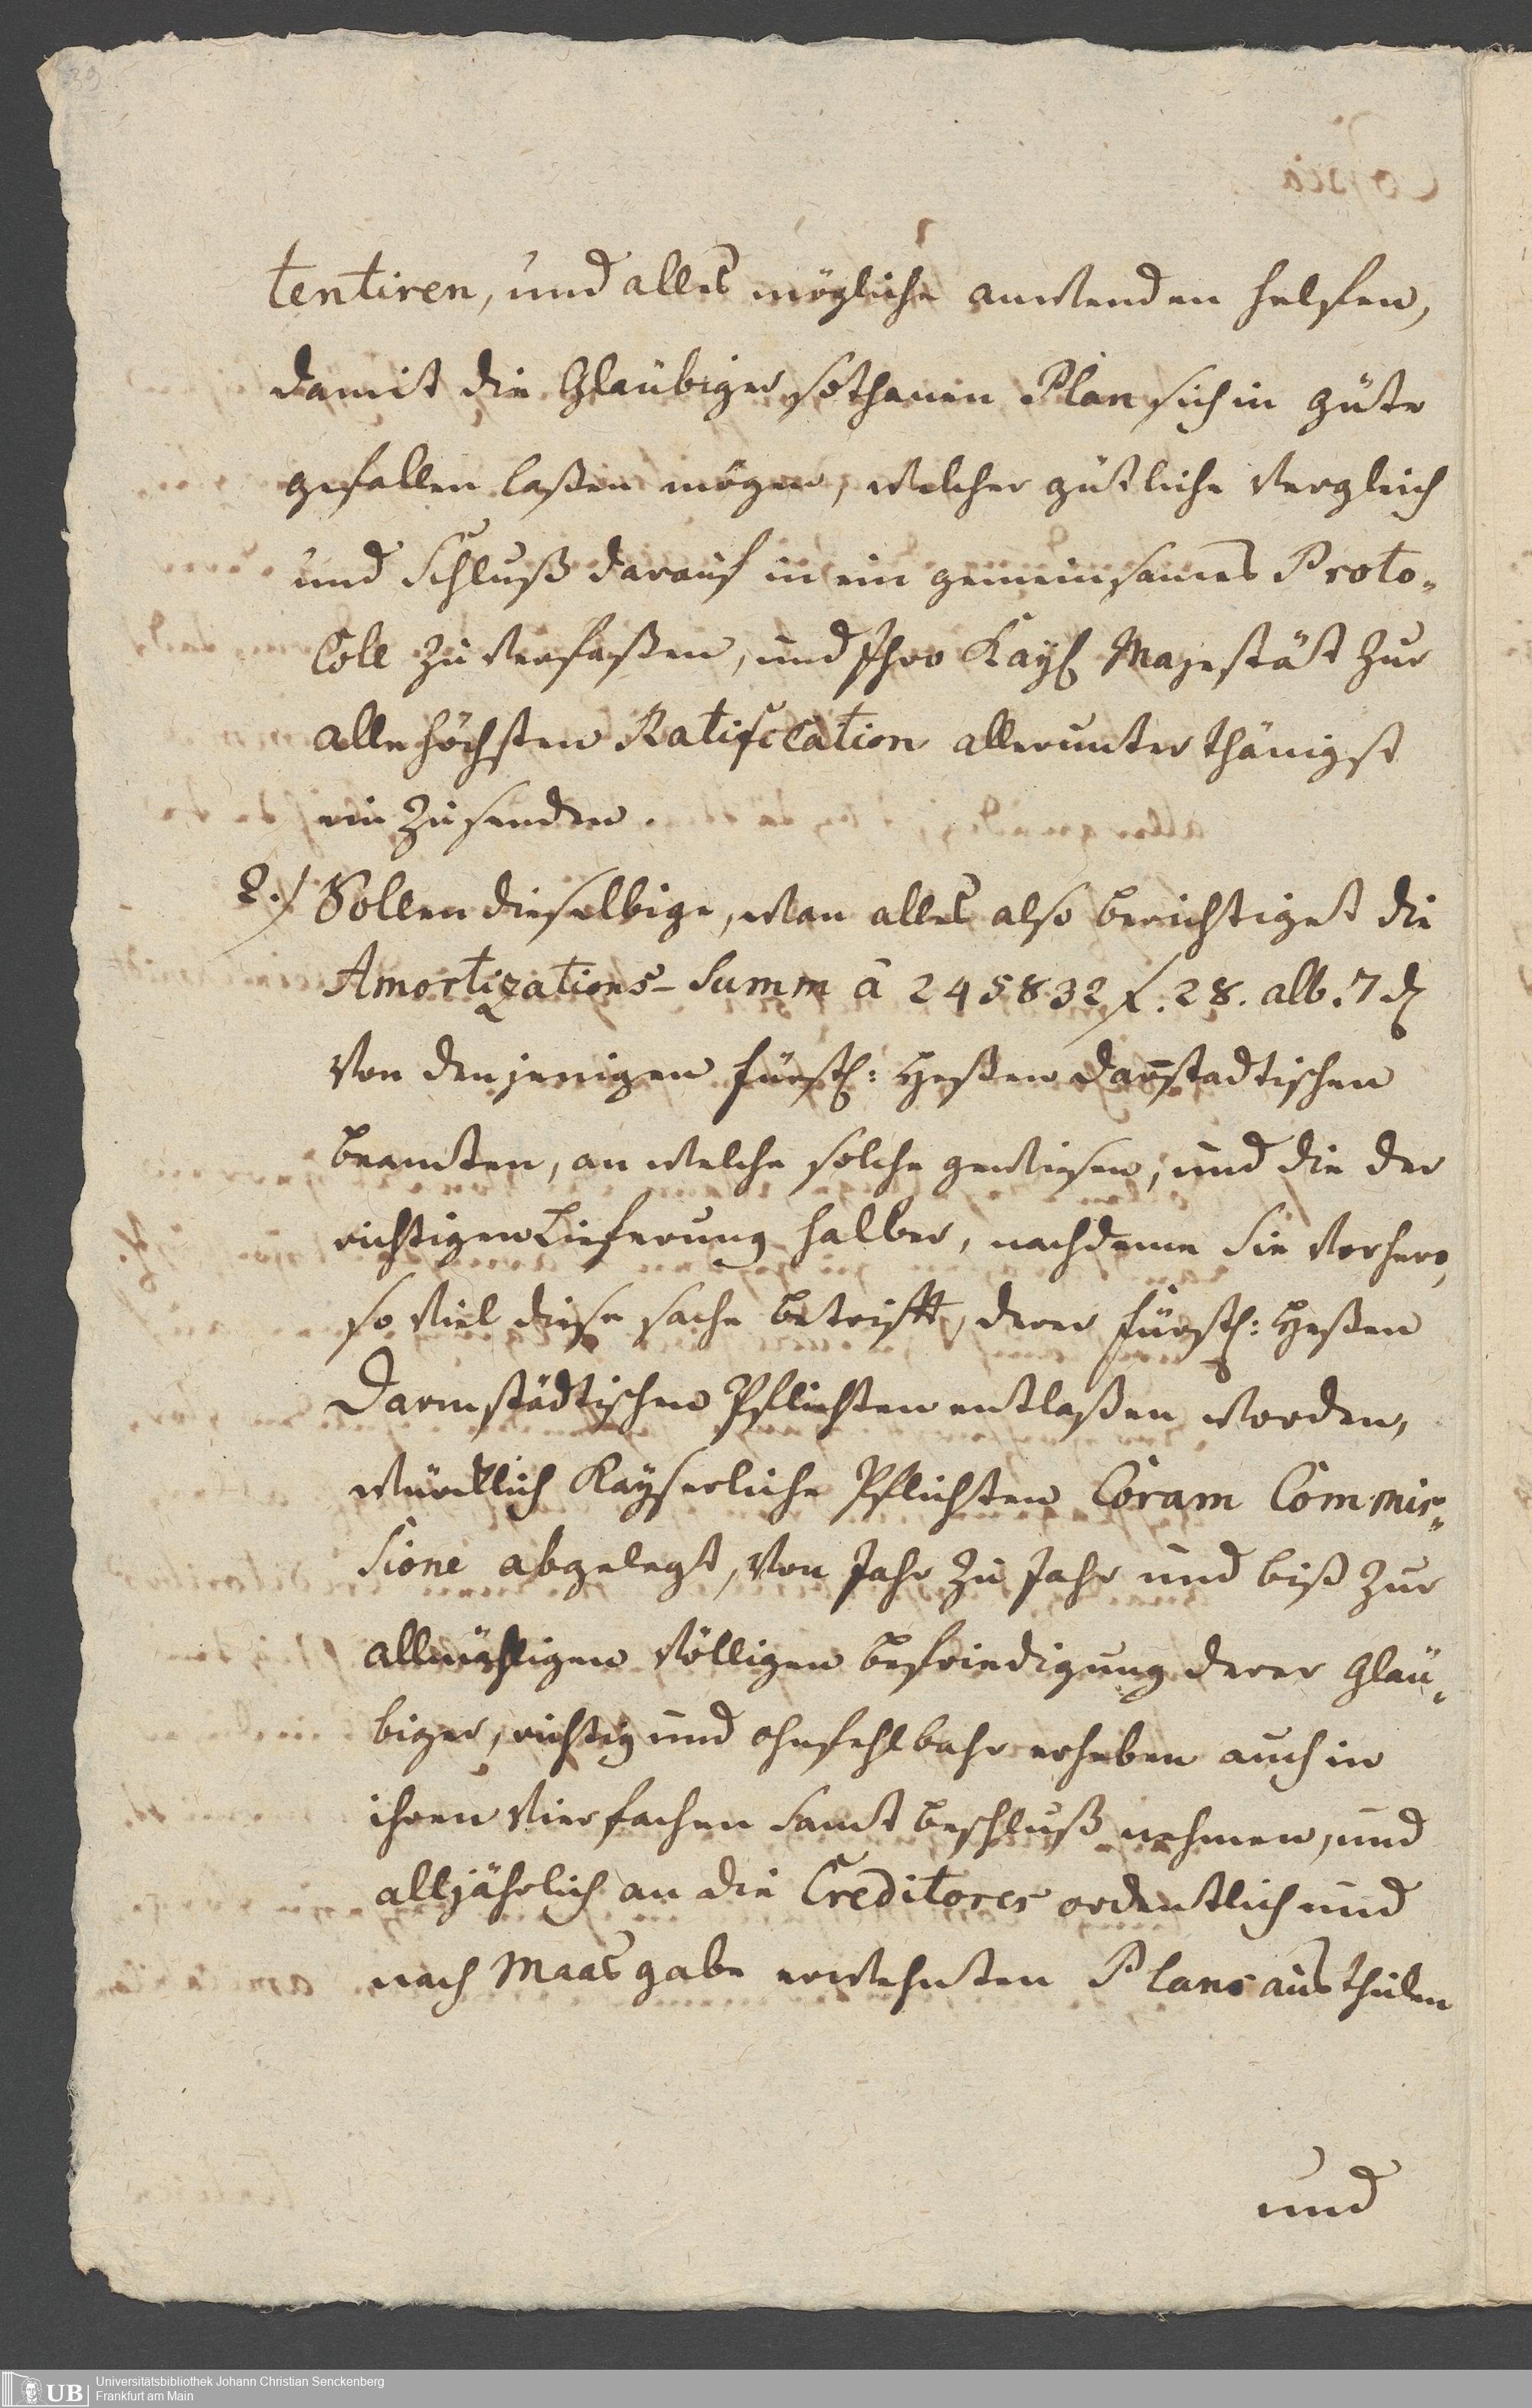 39
tentiren, und alles mögliche anwenden helfen,
damit die Gläubiger sothanen Plan sich in güte
gefallen laßen mögen, welcher gütliche Vergleich
und Schluß darauf in ein gemeinsames Proto-
Coll zu verfaßen, und Ihro Kayl Majestät zur
allerhöchsten Ratification allerunterthänigst
ein zu senden.
2.) Sollen dieselbige, wan alles also berichtiget die
Amortizations-Summ â 245832 f. 28. alb. 7 d
von denjenigen fürstl: Heßen Darmstadtischen
beamten, an welche solche gewiesen, und die der
richtigen Lieferung halber, nachdeme Sie vorhero,
so viel diese sache betrifft, derer fürstl: Heßen
Darmstädtischen Pflichten entlaßen worden,
würcklich Kayserliche Pflichten Coram Commis-
sione abgelegt, von Jahr zu Jahr und biß zur
allmähligen völligen befriedigung derer Gläu-
biger, richtig und ohnfehlbahr erheben auch in
ihren vierfachen samt beschluß nehmen, und
alljährlich an die Creditores ordentlich und
nach Maasgabe erwehnten Plans austheilen
und
UB
Universitätsbibliothek Johann Christian Senckenberg
Frankfurt am Main